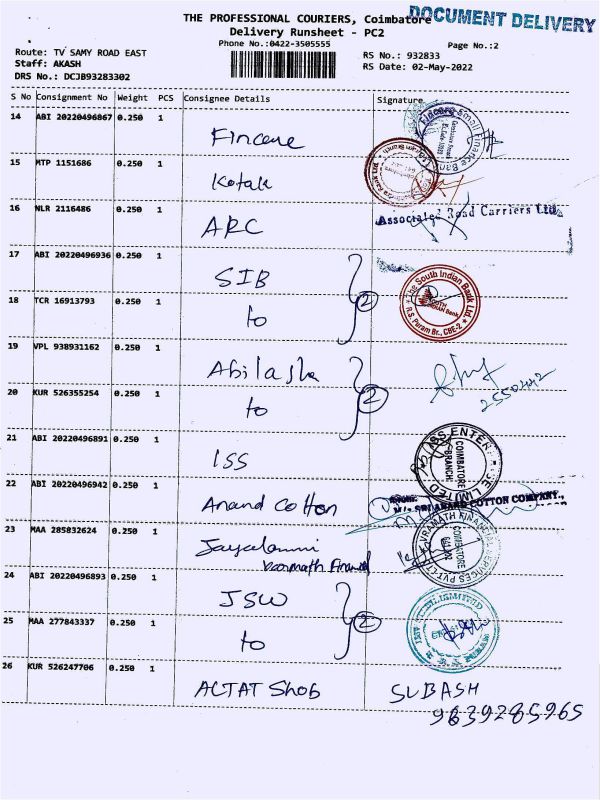 THE PROFESSIONAL COURIERS, Coimbatore
DOCUMENT DELIVERY
Delivery Runsheet - PC2
Phone No.:0422-3505555
Page No.:2
Route: TV SAMY ROAD EAST
RS No.: 932833
Staff: AKASH
RS Date: 02-May-2022
DRS No.: DCJB93283302
S No Consignment No Weight PCS Consignee Details Signature
14 ABI 20220496867 0.250 1
Fincare
15 MTP 1151686 0.250 1
Kotak
16 NLR 2116486 0.250 1
ARC
Associated Road Carriers Ltd.
17 ABI 20220496936 0.250 1
SIB
The South Indian Bank Ltd.
R.S. Puram Br., CBE-2
18 TCR 16913793 0.250 1
to 2
19 VPL 938931162 0.250 1
Abilash
20 KUR 526355254 0.250 1
to 2
21 ABI 20220496891 0.250 1
ISS
COIMBATORE
BRANCH
22 ABI 20220496942 0.250 1
Anand Cotton
SRI ANAND COTTON COMPANY.,
23 MAA 285832624 0.250 1
COIMBATORE
24 ABI 20220496893 0.250 1
JSW
25 MAA 277843337 0.250 1
to 2
26 KUR 526247706 0.250 1
SUBASH
9639285965